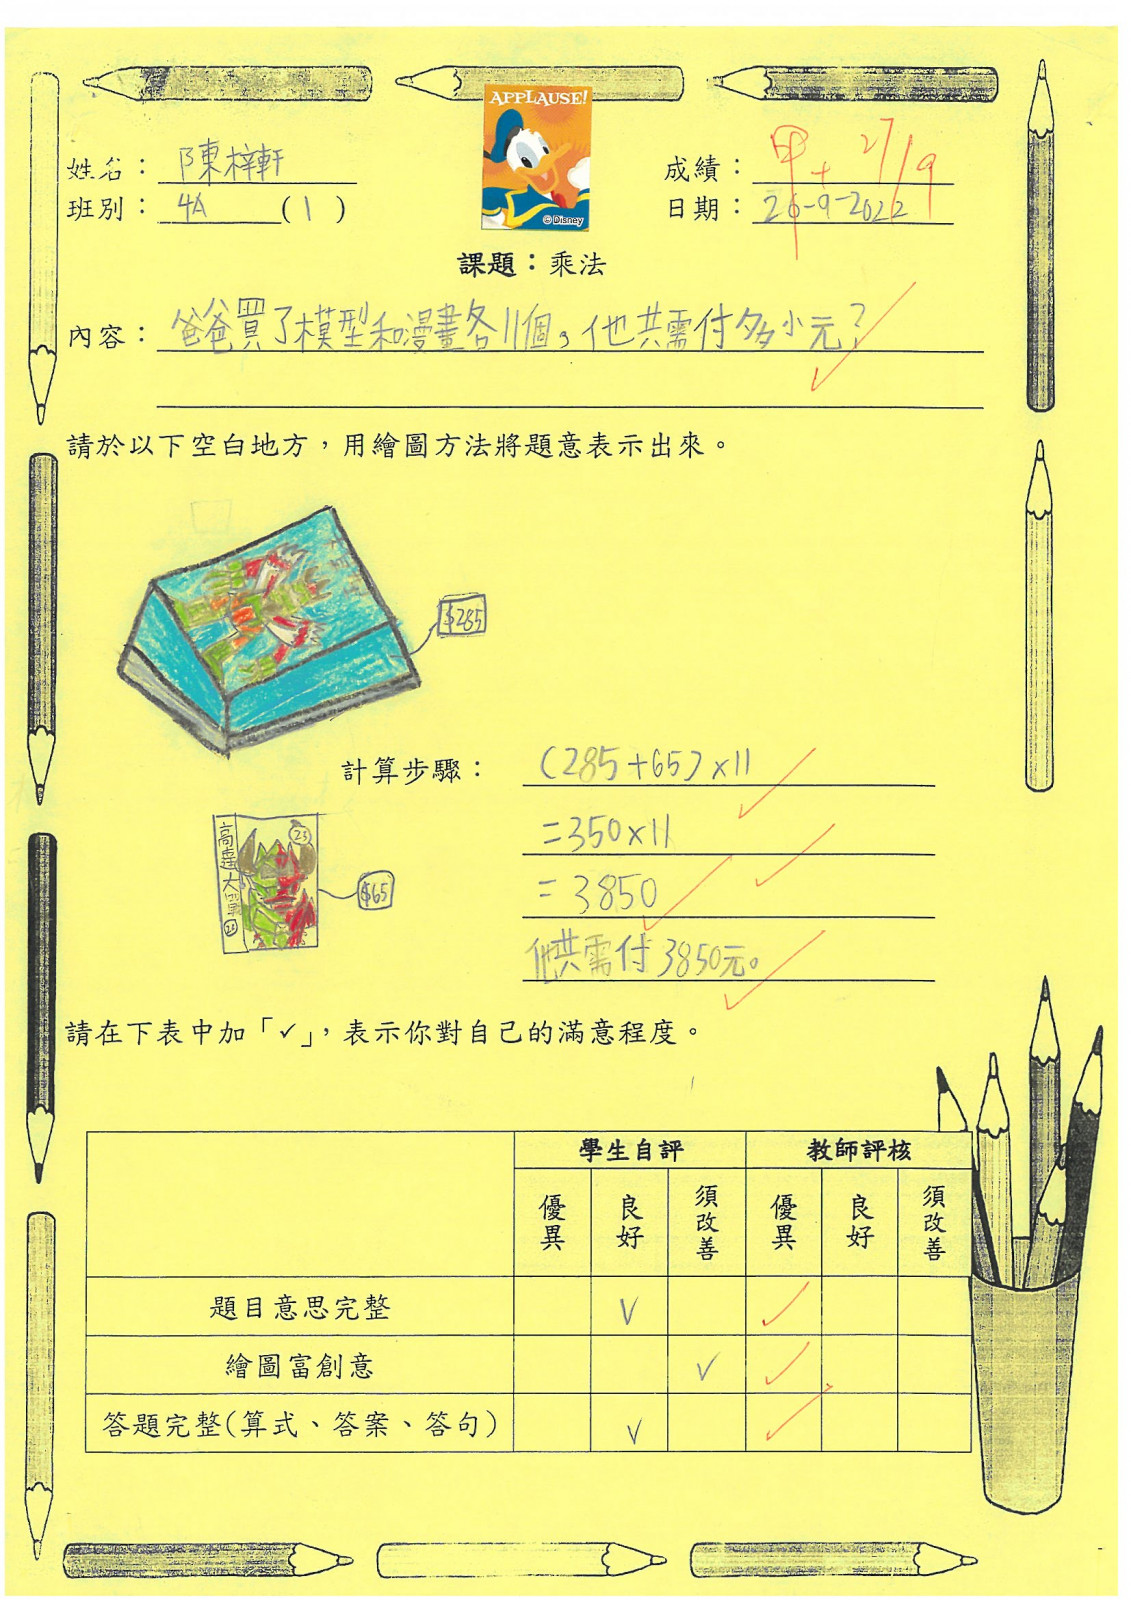 APPLAUSE!
© Disney
姓名： 陳梓軒
成績： 甲+ 27/9
班別： 4A (1)
日期： 26-9-2022
課題：乘法
內容： 爸爸買了模型和漫畫各11個，他共需付多少元？
請於以下空白地方，用繪圖方法將題意表示出來。
$285
計算步驟： (285+65)×11
=350×11
=3850
他共需付3850元。
高達大
23
$65
23
請在下表中加「✓」，表示你對自己的滿意程度。
學生自評 教師評核
優異 良好 須改善 優異 良好 須改善
題目意思完整 ✓ ✓
繪圖富創意 ✓ ✓
答題完整(算式、答案、答句) ✓ ✓